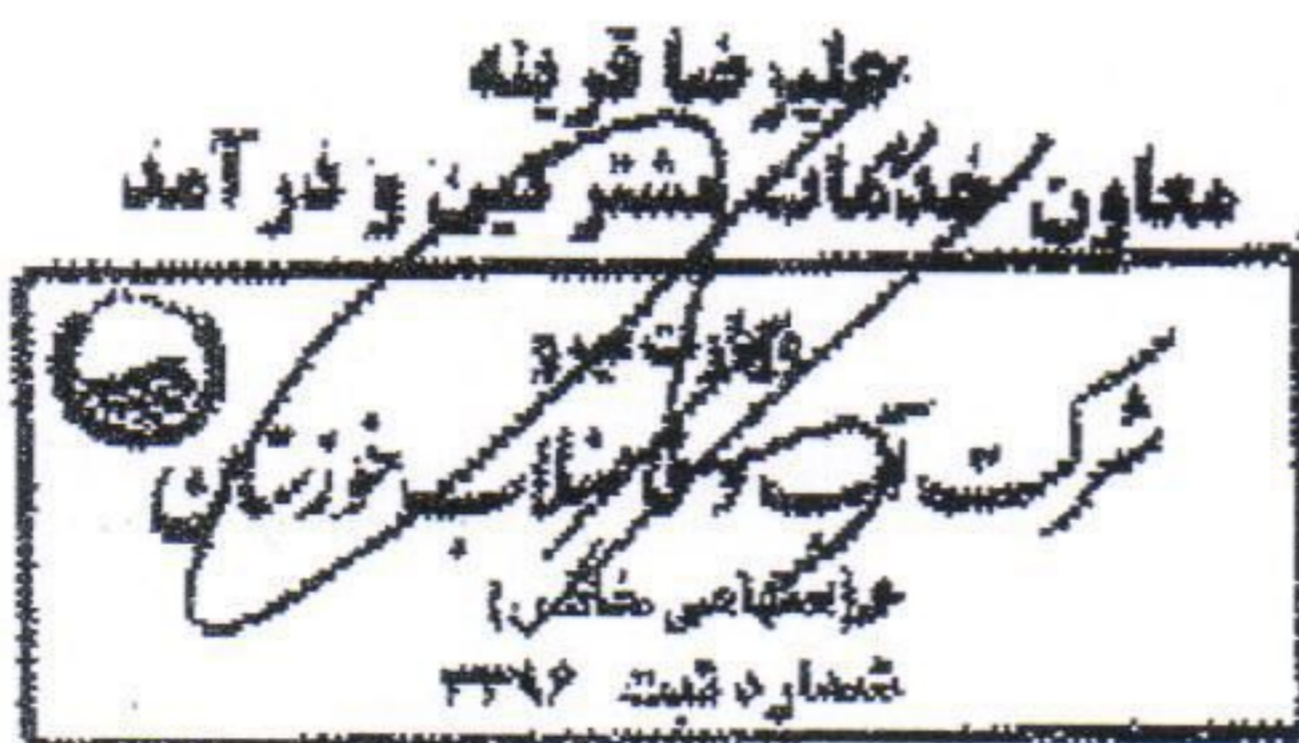 علیرضا قرینه
معاون خدمات مشترکین و درآمد
وزارت نیرو
شرکت آب و فاضلاب خوزستان
(سهامی خاص)
شماره ثبت